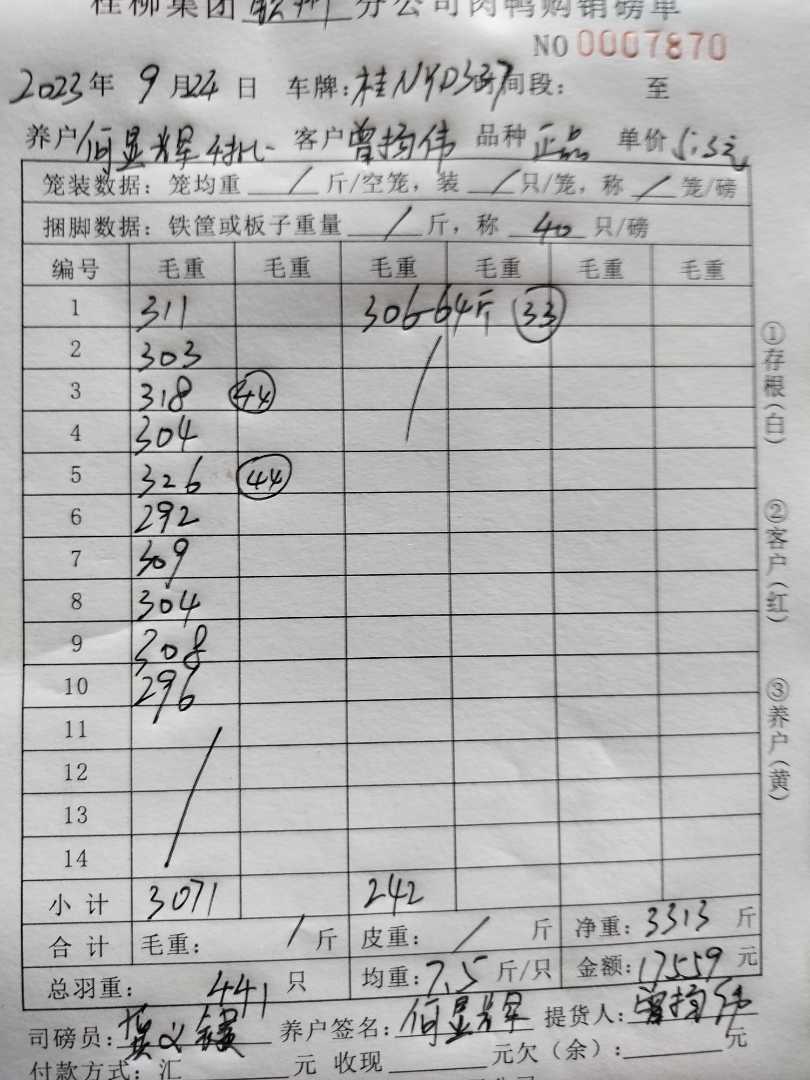 桂柳集团 分公司肉鸭购销磅单
NO 0007870
2023年 9月24日 车牌:桂NYD337 时间段: 至
养户 何显辉 客户 曾扬伟 品种 正品 单价 5.3元
笼装数据: 笼均重 / 斤/空笼, 装 / 只/笼, 称 / 笼/磅
捆脚数据: 铁筐或板子重量 / 斤, 称 40 只/磅
编号 毛重 毛重 毛重 毛重 毛重 毛重
1 311 306-64斤 33
2 303 /
3 318 44
4 304
5 326 44
6 292
7 309
8 304
9 308
10 296
11 /
12
13
14
小计 3071 242
合计 毛重: / 斤 皮重: / 斤 净重: 3313 斤
总羽重: 441 只 均重: 7.5 斤/只 金额: 17559 元
司磅员: 养户签名: 何显辉 提货人: 曾扬伟
付款方式: 汇 元 收现 元欠(余): 元
①存根(白)
②客户(红)
③养户(黄)